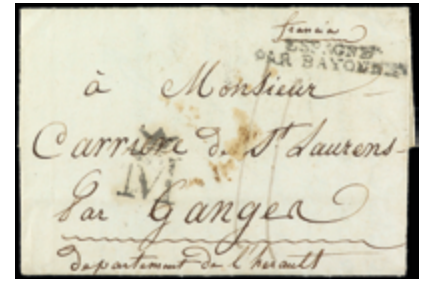 francia
ESPAGNE
PAR BAYONNE
à Monsieur
Carriere de St Laurens
M
par Ganges
departement de l'herault